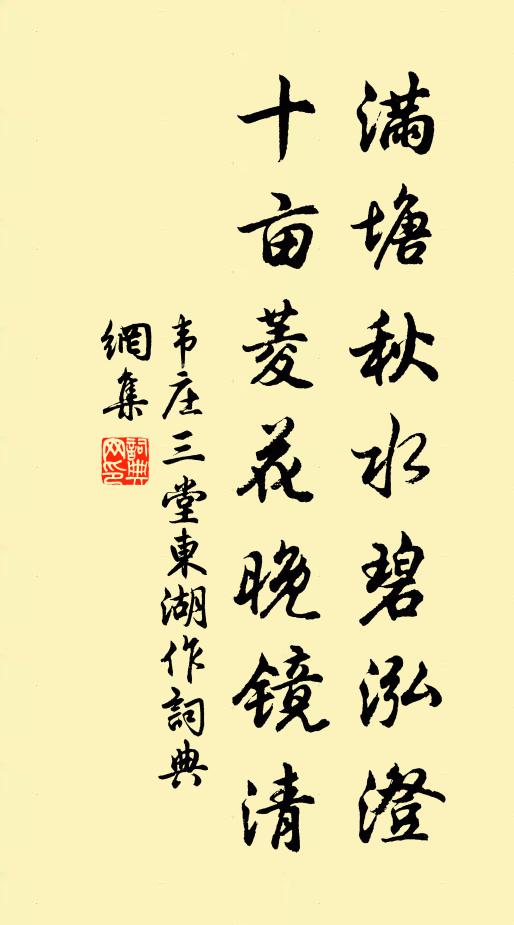 满塘秋水碧泓澄
十亩菱花晚镜清
韦庄三堂東湖作詞典
網集
詞典網印